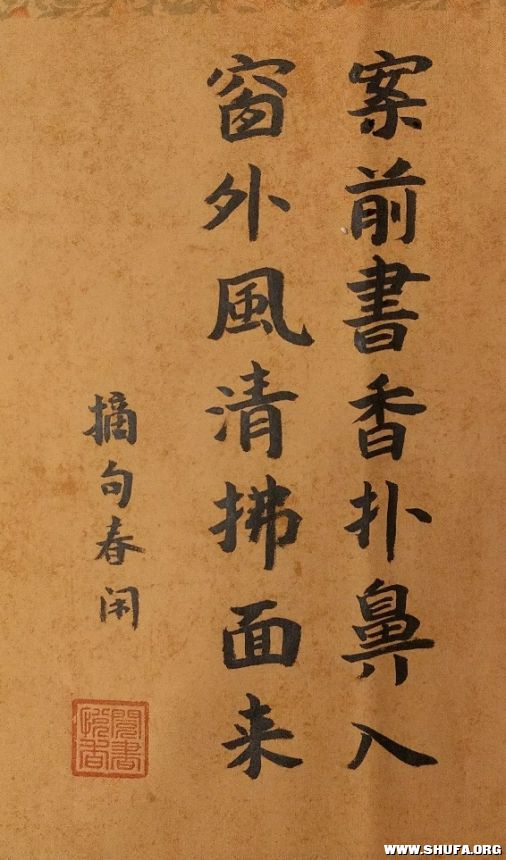 案前書香扑鼻入
窗外風清拂面来
摘句春闲
WWW.SHUFA.ORG